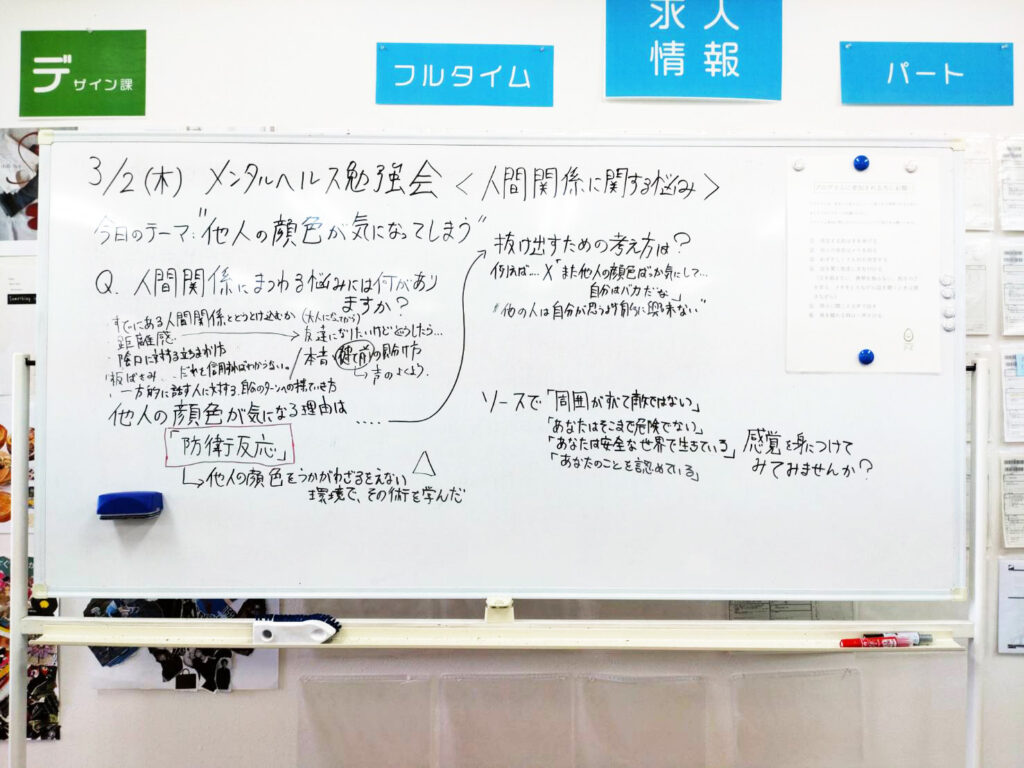 デザイン課
フルタイム
求人
情報
パート
3/2(木) メンタルヘルス勉強会 <人間関係に関する悩み>
今日のテーマ:"他人の顔色が気になってしまう"
Q. 人間関係にまつわる悩みには何があり
ますか?
・すでにある人間関係とどうとけ込むか
(大人になってから)
・距離感 → 友達になりたいけどどうしたら…
・陰口に対する立ちまわり方
本音、建て前の見分け方
↳声のよくよう。
・板ばさみ、…だれを信用すればわからない。
・一方的に話す人に対する、自分のターンへの持っていき方
他人の顔色が気になる理由は ….
「防衛反応」
↳他人の顔色をうかがわざるをえない
環境で、その術を学んだ
△
抜け出すための考え方は?
例えば…. X"また他人の顔色ばっか気にして…
自分はバカだな。」
"他の人は自分が思うより自分に興味ない"
ソースで「周囲がすべて敵ではない」
「あなたはそこまで危険でない」
「あなたは安全な世界で生きている」
「あなたのことを認めている」
感覚を身につけて
みてみませんか?